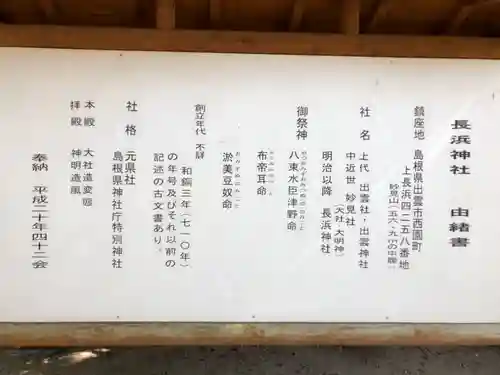 長浜神社　由緒書
鎮座地　島根県出雲市西園町
上長浜四二五八番地
妙見山(五六・九㍍の中腹)
社名　上代　出雲社・出雲神社
中近世　妙見社
(大社大明神)
明治以降　長浜神社
御祭神　八束水臣津野命
やつかみずおみつぬのみこと
布帝耳命
ふてみみのみこと
淤美豆奴命
おみずぬのみこと
創立年代　不詳
和銅三年(七一〇年)
の年号及びそれ以前の
記述の古文書あり。
社格　元県社
島根県神社庁特別神社
本殿　大社造変態
拝殿　神明造風
奉納　平成二十年四十二会